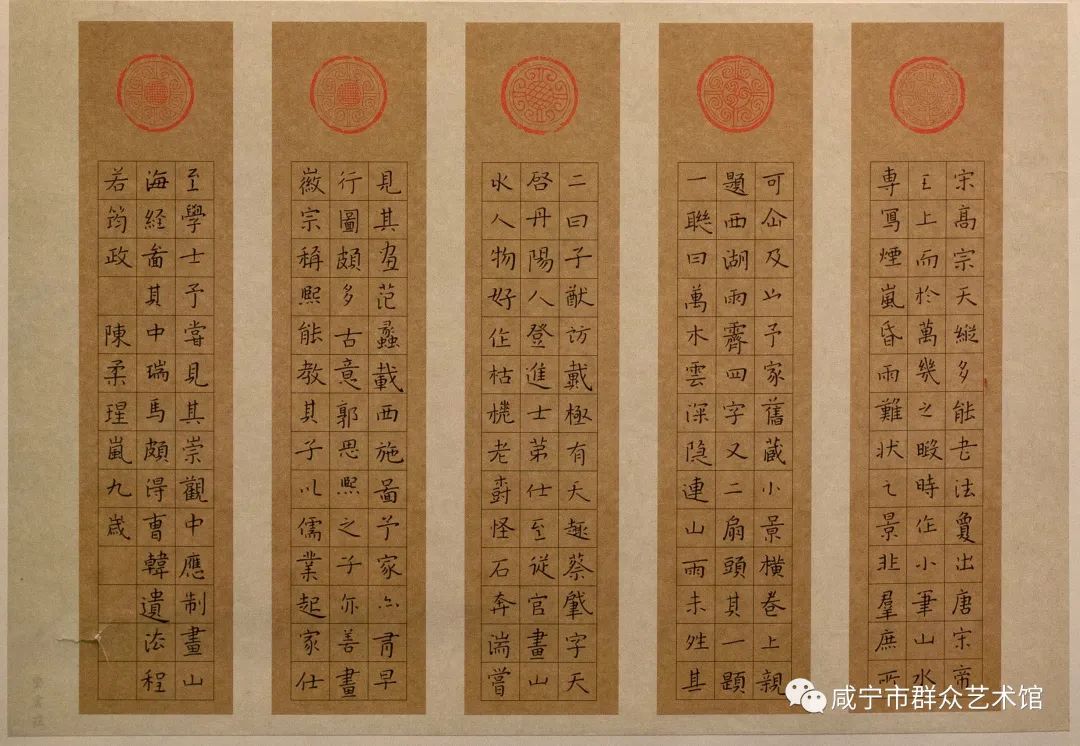 宋高宗天縱多能書法敻出唐宋帝
王上而於萬幾之暇時作小筆山水
専寫煙嵐昏雨難狀之景非羣庶所
可企及也予家舊藏小景橫卷上親
題西湖雨霽四字又二扇頭其一題
一聯曰萬木雲深隐連山雨未姓其
二曰子猷訪戴極有天趣蔡肈字天
啓丹陽人登進士第仕至從官畫山
水人物好作枯槎老樹怪石奔湍嘗
見其畫范蠡載西施圖予家亦有早
行圖頗多古意郭思熙之子亦善畫
徽宗稱熙能教其子以儒業起家仕
至學士予嘗見其崇觀中應制畫山
海経圖其中瑞馬頗得曹韓遺法程
若筠政 陳柔瑆嵐九歲
咸宁市群众艺术馆